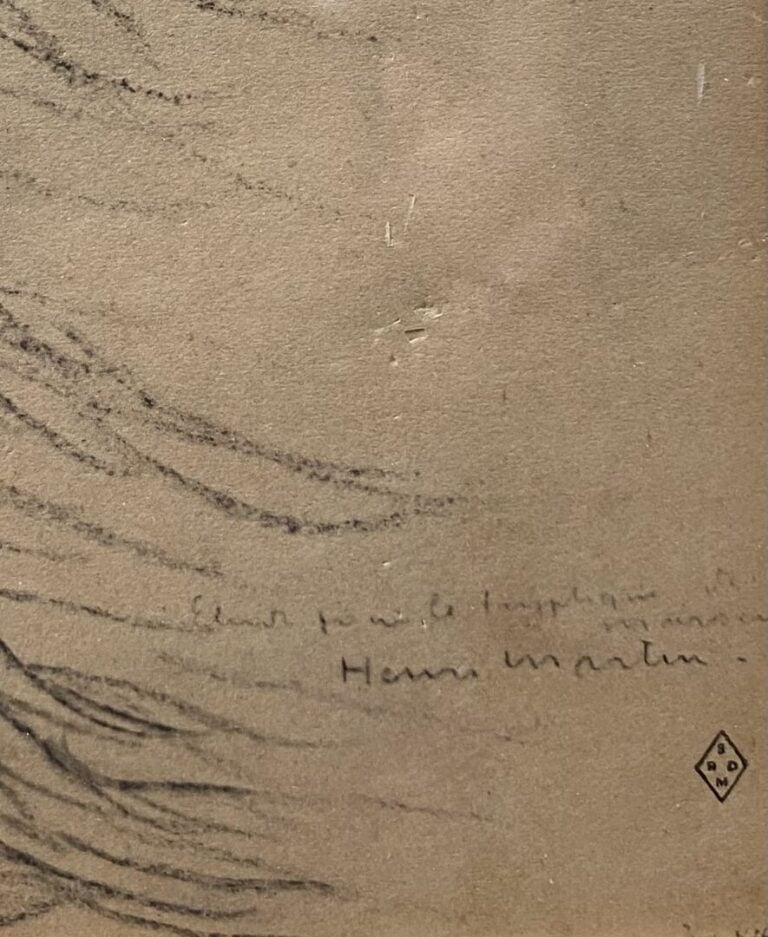 Etude pour le tryptique de
Henri Martin.
S
R D
M